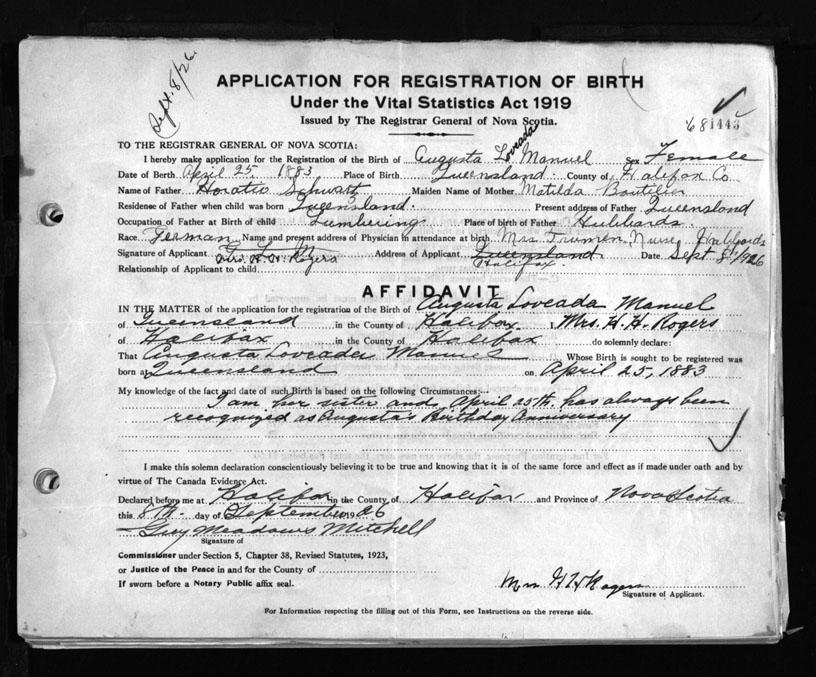 Sept. 8/26.
APPLICATION FOR REGISTRATION OF BIRTH
Under the Vital Statistics Act 1919
Issued by The Registrar General of Nova Scotia.
TO THE REGISTRAR GENERAL OF NOVA SCOTIA:
I hereby make application for the Registration of the Birth of Augusta Loveada Manuel Sex Female
Date of Birth April 25 1883 Place of Birth Queensland County of Halifax Co
Name of Father Horatio Schwartz Maiden Name of Mother Matilda Boutilier
Residence of Father when child was born Queensland. Present address of Father Queensland
Occupation of Father at Birth of child Lumbering Place of Birth of Father Hubbards.
Race German Name and present address of Physician in attendance at birth Mrs Trumen Nurse Hubbards
Signature of Applicant Mrs. H. H. Rogers Address of Applicant Queensland Halifax. Date Sept 8th/1926
Relationship of Applicant to child
AFFIDAVIT
IN THE MATTER of the application for the registration of the Birth of Augusta Loveada Manuel
of Queensland in the County of Halifax, Mrs. H. H. Rogers
of Halifax in the County of Halifax do solemnly declare:
That Augusta Loveada Manuel Whose Birth is sought to be registered was
born at Queensland on April 25, 1883
My knowledge of the fact and date of such Birth is based on the following Circumstances:—
I am her sister and April 25th. has always been
recognized as Augusta's Birthday Anniversary
I make this solemn declaration conscientiously believing it to be true and knowing that it is of the same force and effect as if made under oath and by
virtue of The Canada Evidence Act.
Declared before me at Halifax in the County of Halifax and Province of Nova Scotia
this 8th day of September 1926
Guy Meadows Mitchell
Signature of
Commissioner under Section 5, Chapter 38, Revised Statutes, 1923,
or Justice of the Peace in and for the County of
If sworn before a Notary Public affix seal.
Mrs H H Rogers
Signature of Applicant.
For Information respecting the filling out of this Form, see Instructions on the reverse side.